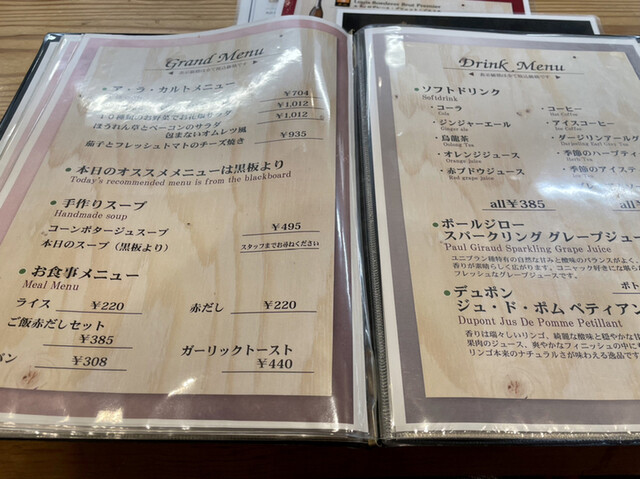 Grand Menu
・ア・ラ・カルトメニュー
¥704
¥1,012
10種類のお野菜でお花畑サラダ ¥1,012
ほうれん草とベーコンのサラダ
包まないオムレツ風 ¥935
茄子とフレッシュトマトのチーズ焼き
・本日のオススメメニューは黒板より
Today's recommended menu is from the blackboard
・手作りスープ
Handmade soup
コーンポタージュスープ ¥495
本日のスープ（黒板より） スタッフまでお尋ねください
・お食事メニュー
Meal Menu
ライス ¥220
赤だし ¥220
ご飯赤だしセット
¥385
パン ¥308
ガーリックトースト
¥440
Drink Menu
・ソフトドリンク
Softdrink
・コーラ
Cola
・ジンジャーエール
Ginger ale
・烏龍茶
Oolong Tea
・オレンジジュース
Orange juice
・赤ブドウジュース
Red grape juice
all¥385
・コーヒー
Hot Coffee
・アイスコーヒー
Ice Coffee
・ダージリンアールグ
Darjeeling Earl Grey Tea
・季節のハーブティ
Herb Tea
・季節のアイステ
all¥
・ポールジロー
スパークリング グレープジュー
Paul Giraud Sparkling Grape Juice
ユニブラン種特有の自然な甘みと酸味のバランスがよく、
香りが素晴らしく広がります。コニャック好きになる
フレッシュなグレープジュースです。
ボト
・デュポン
ジュ・ド・ポム ペティアン
Dupont Jus De Pomme Petillant
香りは瑞々しいリンゴ。綺麗な酸味と穏やかな甘
果肉のジュース。爽やかなフィニッシュの中に
リンゴ本来のナチュラルさが味わえる逸品です